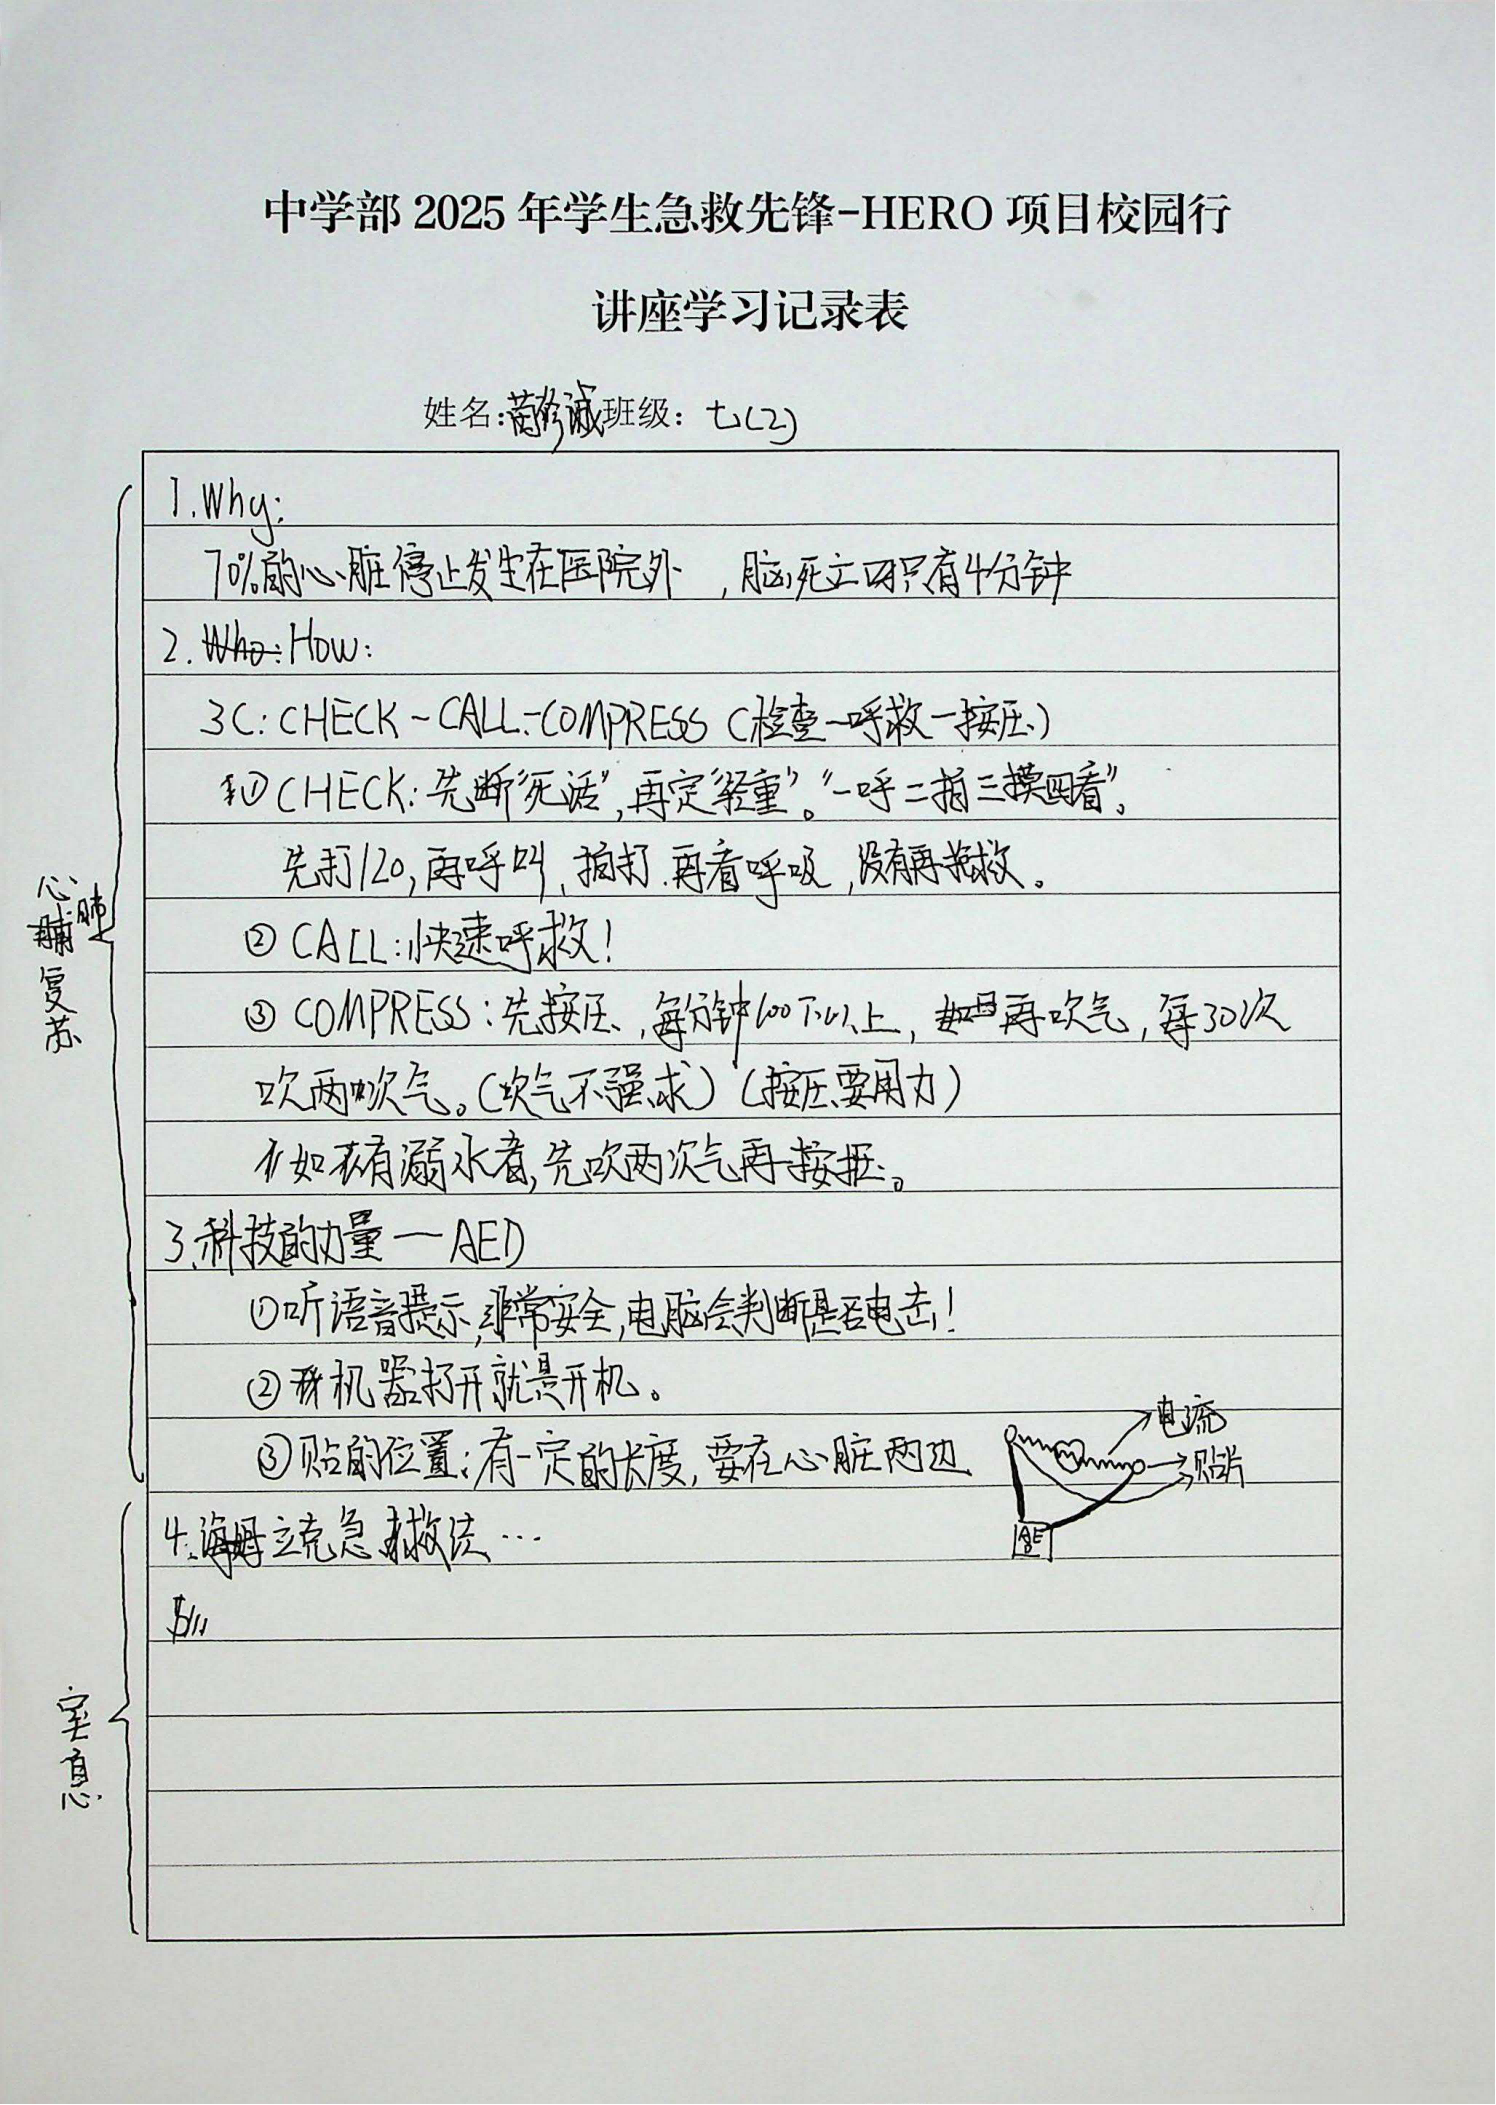 中学部 2025 年学生急救先锋-HERO 项目校园行
讲座学习记录表
姓名: 修诚 班级: 七(2)
1. Why:
70%的心脏停止发生在医院外，脑死亡只有4分钟
2. Who: How:
3C: CHECK-CALL-COMPRESS (检查-呼救-按压)
① CHECK: 先断"死活"，再定"轻重"。"一呼二拍三摸四看"。
先打120，再呼叫，拍打.再看呼吸，没有再抢救。
② CALL: 快速呼救!
③ COMPRESS: 先按压，每分钟100下以上，再吹气，每30次
吹两次气。(吹气不强求) (按压要用力)
如有溺水者，先吹两次气再按压。
3.科技的力量—AED
①听语音提示，非常安全，电脑会判断是否电击!
②机器打开就是开机。
③贴的位置: 有一定的长度，要在心脏两边
电流
贴片
AED
4.海姆立克急救法…
心肺复苏
窒息